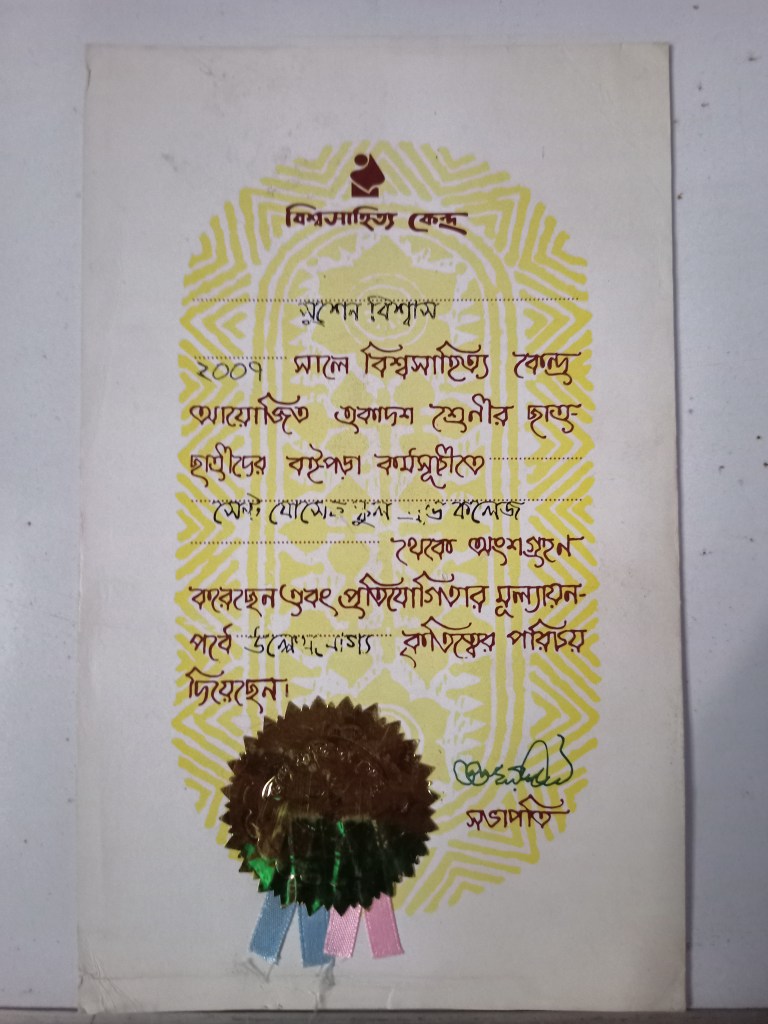 বিশ্বসাহিত্য কেন্দ্র
সুশেন বিশ্বাস
২০০৭ সালে বিশ্বসাহিত্য কেন্দ্র
আয়োজিত একাদশ শ্রেণীর ছাত্র-
ছাত্রীদের বইপড়া কর্মসূচীতে
সেন্ট যোসেফ স্কুল কলেজ
থেকে অংশগ্রহন
করেছেন এবং প্রতিযোগিতার মূল্যায়ন-
পর্বে উল্লেখযোগ্য কৃতিত্বের পরিচয়
দিয়েছেন।
সভাপতি